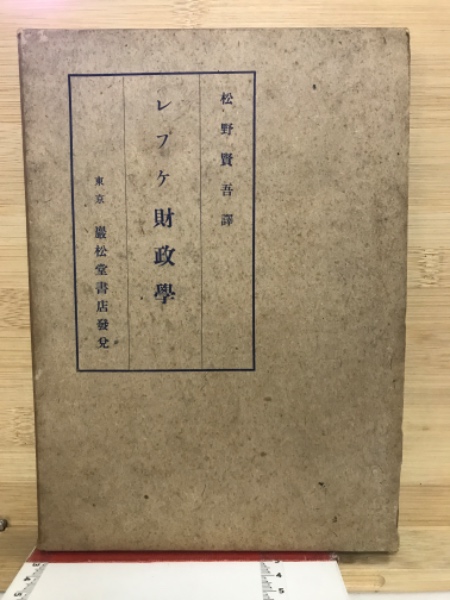 松野賢吾譯
レプケ財政學
東京 巖松堂書店發兌